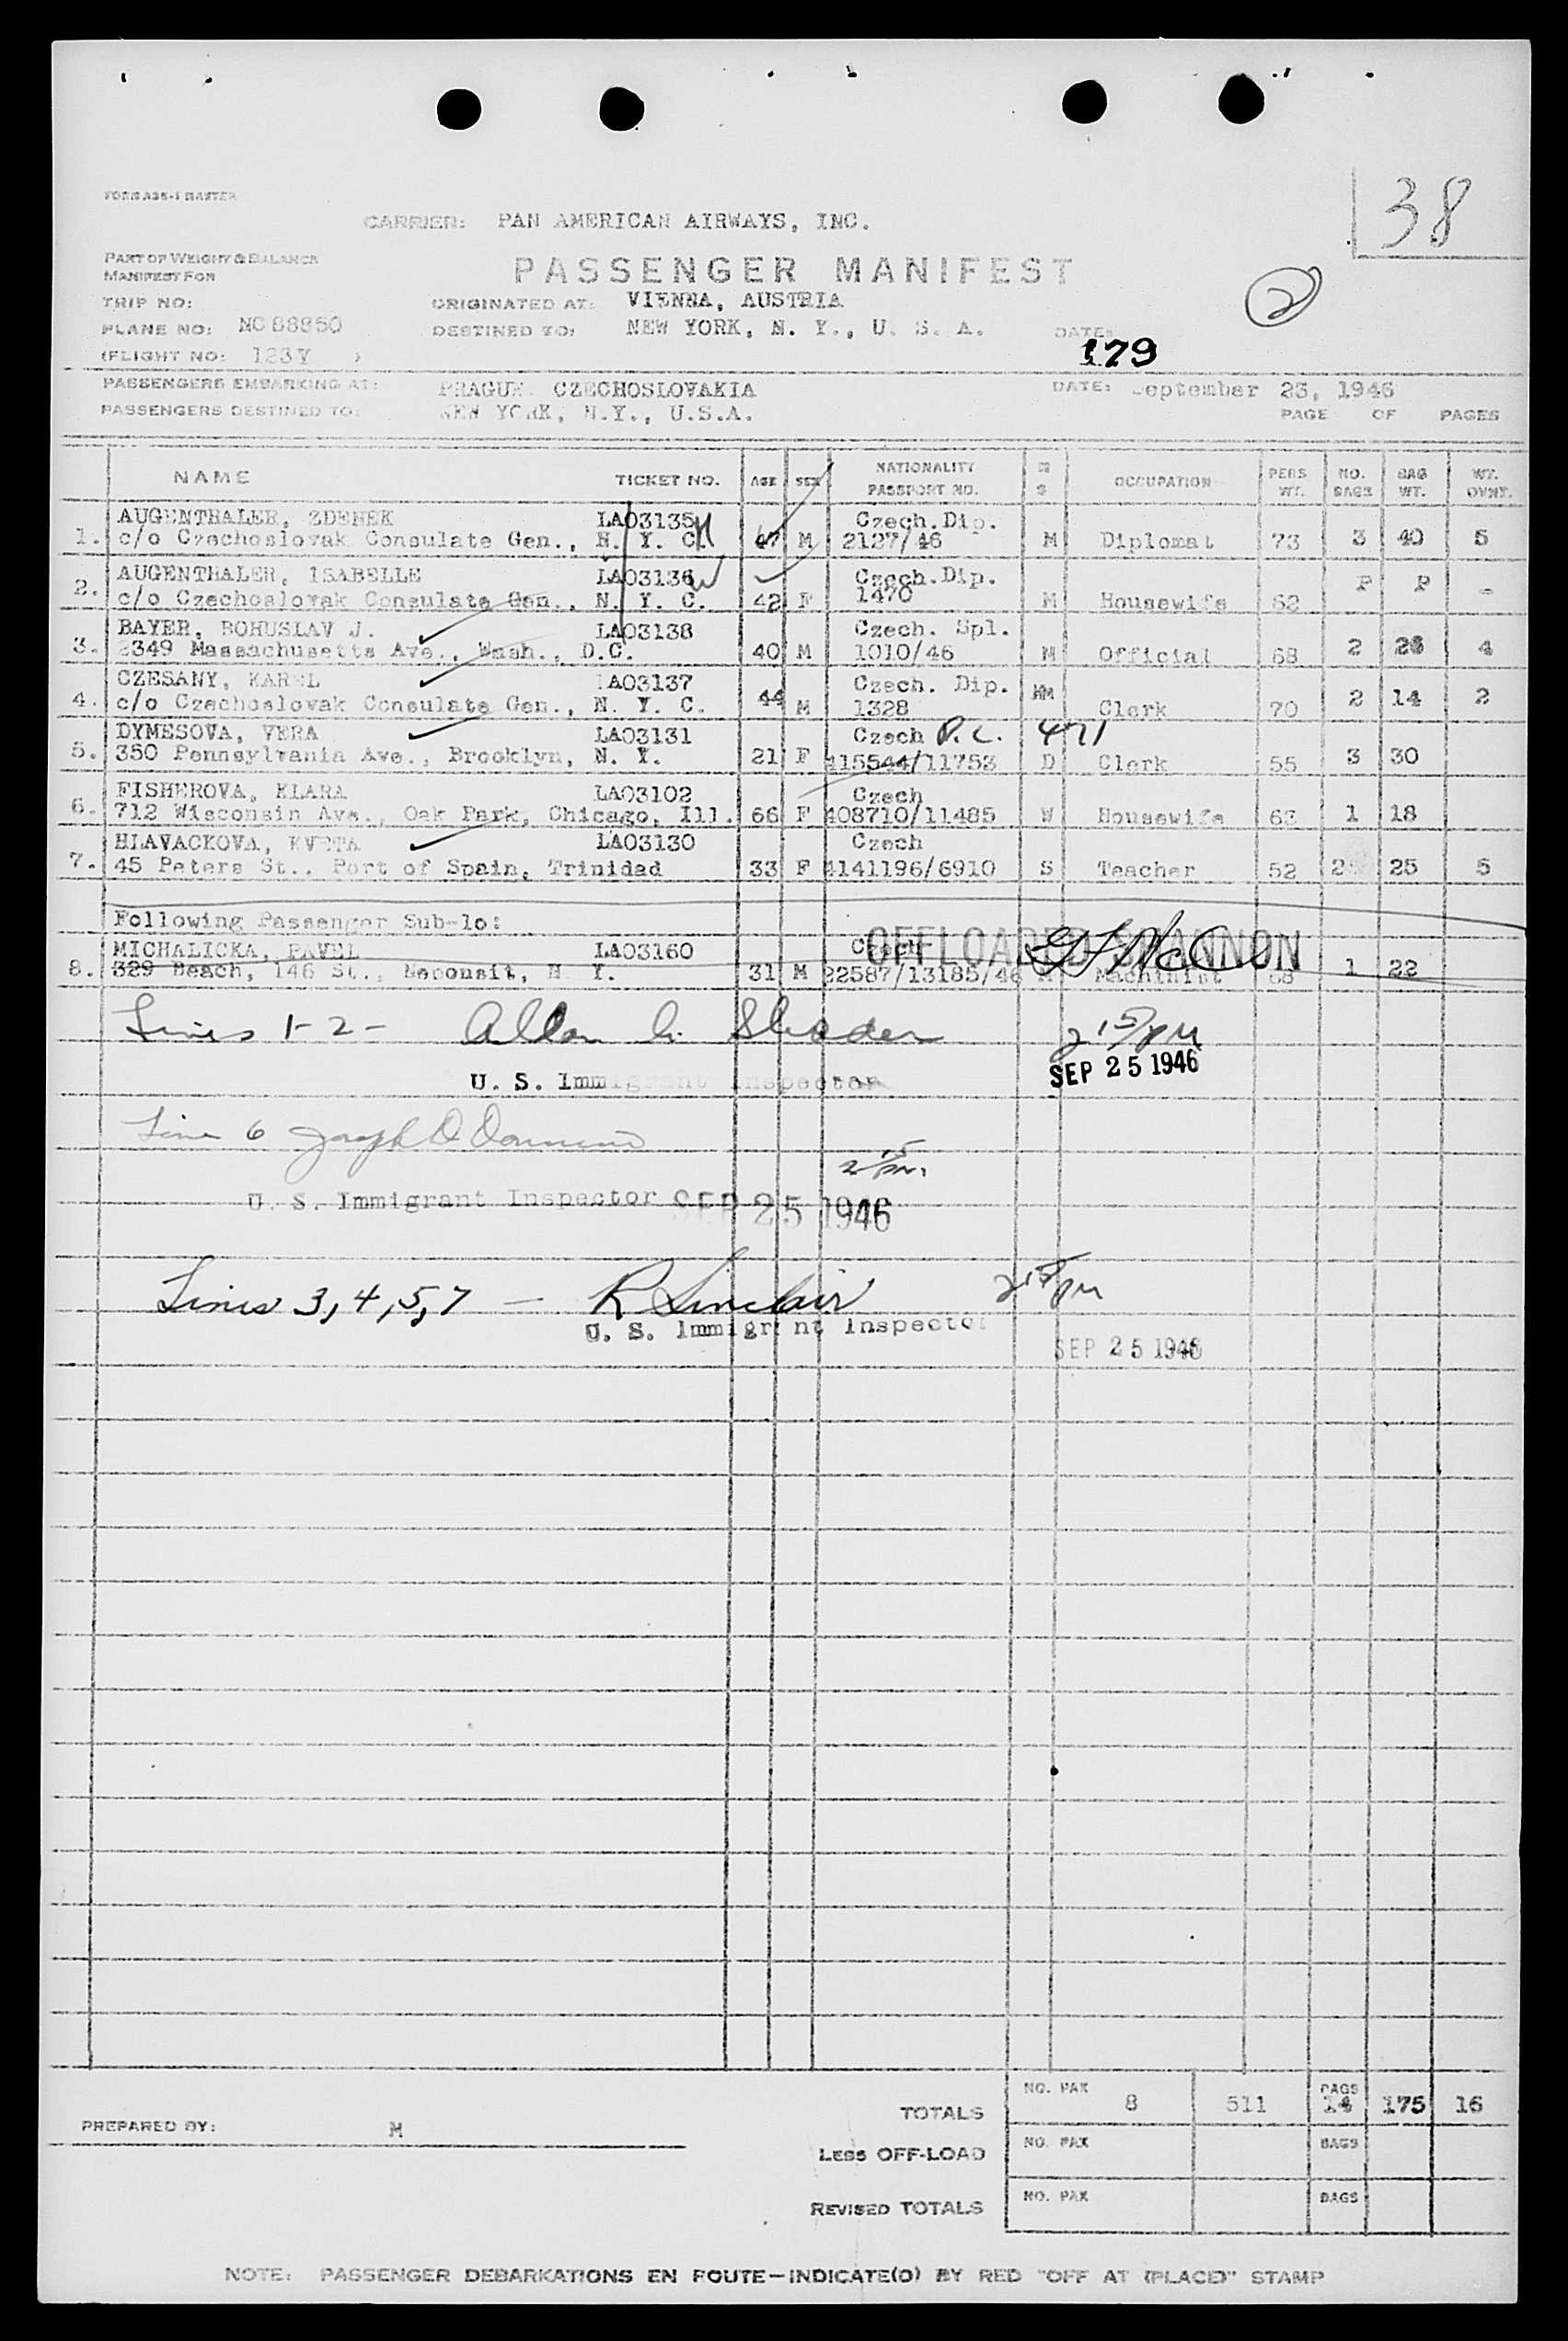 FORM A35-1 MASTER
38
CARRIER: PAN AMERICAN AIRWAYS, INC.
PART OF WEIGHT & BALANCE
MANIFEST FOR
PASSENGER MANIFEST
2
TRIP NO: ORIGINATED AT: VIENNA, AUSTRIA
PLANE NO: NC 88850 DESTINED TO: NEW YORK, N. Y., U. S. A. DATE:
(FLIGHT NO: 123Y ) 179
PASSENGERS EMBARKING AT: PRAGUE. CZECHOSLOVAKIA DATE: September 23, 1946
PASSENGERS DESTINED TO: NEW YORK, N.Y., U.S.A. PAGE OF PAGES
NAME TICKET NO. AGE SEX NATIONALITY PASSPORT NO. M S OCCUPATION PERS WT. NO. BAGS BAG WT. WT. OVWT.
AUGENTHALER, ZDENEK LA03135 Czech. Dip.
1. c/o Czechoslovak Consulate Gen., N. Y. C. 47 M 2127/46 M Diplomat 73 3 40 5
AUGENTHALER, ISABELLE LA03136 Czech. Dip.
2. c/o Czechoslovak Consulate Gen., N. Y. C. 42 F 1470 M Housewife 62 P P -
BAYER, BOHUSLAV J. LA03138 Czech. Spl.
3. 2349 Massachusetts Ave., Wash., D.C. 40 M 1010/46 M Official 68 2 26 4
CZESANY, KAREL LA03137 Czech. Dip.
4. c/o Czechoslovak Consulate Gen., N. Y. C. 44 M 1328 M Clerk 70 2 14 2
DYMESOVA, VERA LA03131 Czech P.L. 471
5. 350 Pennsylvania Ave., Brooklyn, N. Y. 21 F 415544/11753 D Clerk 55 3 30
FISHEROVA, KLARA LA03102 Czech
6. 712 Wisconsin Ave., Oak Park, Chicago, Ill. 66 F 408710/11485 W Housewife 63 1 18
HLAVACKOVA, KVETA LA03130 Czech
7. 45 Peters St., Port of Spain, Trinidad 33 F 4141196/6910 S Teacher 52 2 25 5
Following Passenger Sub-lo:
MICHALICKA, PAVEL LA03160 Czech OFFLOADED SHANNON
8. 329 Beach, 146 St., Neponsit, N Y. 31 M 22587/13185/46 M Machinist 68 1 22
Lines 1-2- Allan Shader 2 15 PM
U. S. Immigrant Inspector SEP 25 1946
Line 6 Joseph D 2 15 pm.
U. S. Immigrant Inspector SEP 25 1946
Lines 3, 4, 5, 7 — R Sinclair 2 15 pm
U. S. Immigrant Inspector SEP 25 1946
TOTALS NO. PAX 8 511 BAGS 14 175 16
PREPARED BY: M
LESS OFF-LOAD NO. PAX BAGS
REVISED TOTALS NO. PAX BAGS
NOTE: PASSENGER DEBARKATIONS EN ROUTE—INDICATE(D) BY RED "OFF AT (PLACE)" STAMP